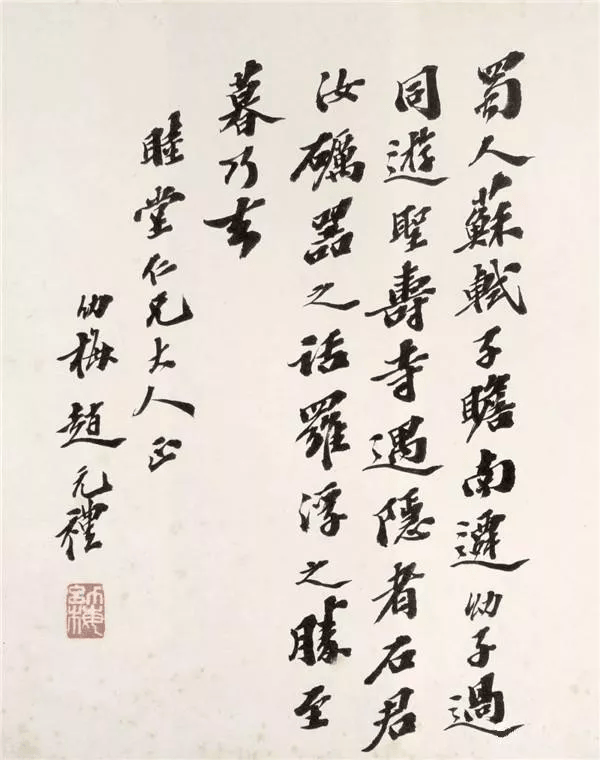 蜀人蘇軾子瞻南遷幼子過
同遊聖壽寺遇隱者石君
汝礪器之話羅浮之勝至
暮乃去
睦堂仁兄大人正
幼梅趙元禮
幼梅